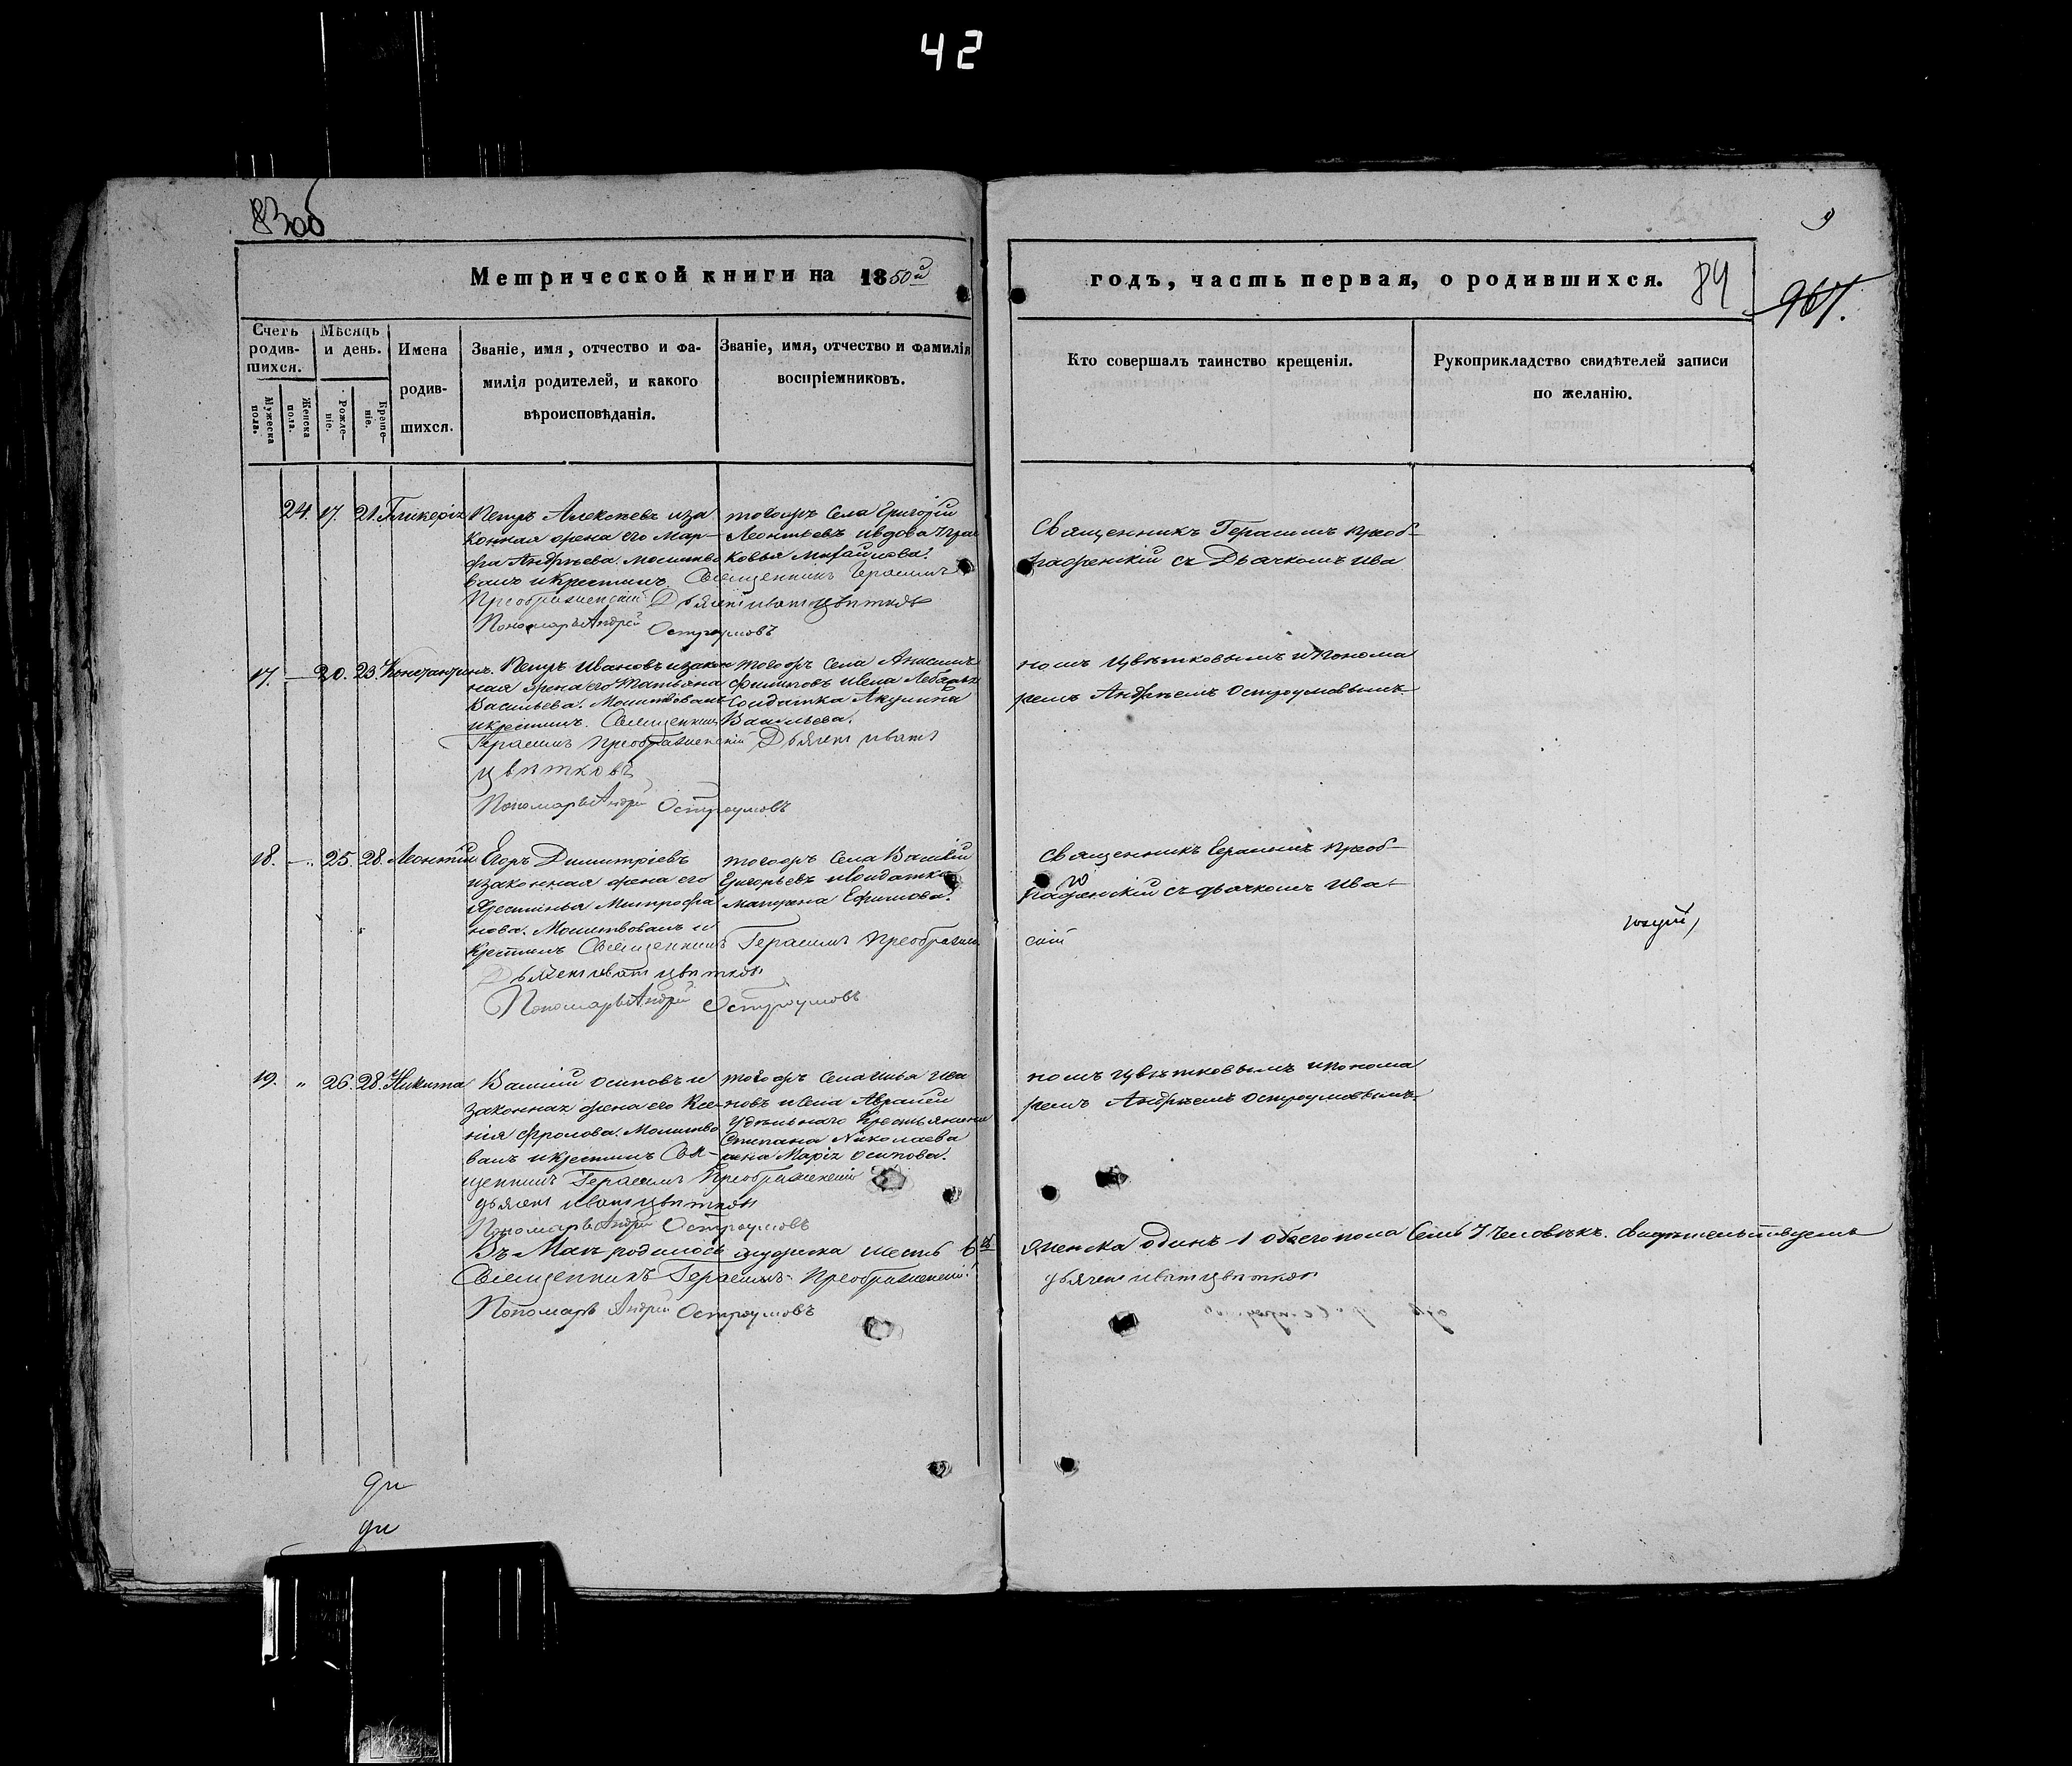 42
83об
Метрической книги на 1850й
Счетъ родившихся.
Мужеска пола.
Женска пола.
Мѣсяцъ и день.
Рожденіе.
Крещеніе.
Имена родившихся.
Званіе, имя, отчество и фамилія родителей, и какого вѣроисповѣданія.
Званіе, имя, отчество и фамилія воспріемниковъ.
24. 17. 21. Гликерія
Петръ Алексѣевъ иза
конная жена его Мар-
фа Андрѣева. Молитво
валъ и крестилъ. Священникъ Герасимъ
Преображенскій Дьячекъ Иванъ Цвѣтковъ
Пономарь Андрей Остроумовъ
тогожъ села Григорій
Леонтьевъ ивдова Пра
ковья Михайлова.
17. — 20. 23. Константинъ.
Петръ Ивановъ изакон
ная жена его Татьяна
Васильева. Молитвовалъ
икрестилъ. Священникъ
Герасимъ Преображенскій Дьячекъ Иванъ
Цвѣтковъ
Пономарь Андрей Остроумовъ
тогожъ села Анисимъ
Филиповъ
Солдатка Акулина
Васильева.
18. — 25. 28. Леонтій
Егоръ Димитріевъ
изаконная жена его
Хрестинья Митрофа
нова. Молитвовалъ и
крестилъ Священникъ Герасимъ Преображен
скій
Дьячекъ Иванъ Цвѣтковъ
Пономарь Андрей Остроумовъ
тогожъ села Василій
Григорьевъ исолдатка
Матрена Ефимова.
19. „ 26. 28. Никита
Василій Осиповъ и
законная жена его Ксе-
нія Фролова. Молитво
валъ икрестилъ Свя-
щенникъ Герасимъ Преображенскій
дьячекъ Иванъ Цвѣтковъ
Пономарь Андрей Остроумовъ
тогожъ села Илья Ива
новъ исела Авралей
удѣльнаго крестьянина
Степана Николаева
жена Марія Осипова.
Въ Маѣ родилось мужеска шесть 6
женска одинъ 1 обоего пола семь 7 человѣкъ. Свидѣтельствуемъ
Священникъ Герасимъ Преображенскій
дьячекъ Иванъ Цвѣтковъ
Пономарь Андрей Остроумовъ
9
годъ, часть первая, о родившихся.
84
967.
Кто совершалъ таинство крещенія.
Рукоприкладство свидѣтелей записи по желанію.
Священникъ Герасимъ Преоб-
раженскій съ Дьячкомъ Ива
номъ Цвѣтковымъ иПонома
ремъ Андрѣемъ Остроумовымъ
Священникъ Герасимъ Преоб-
раженскій съ дьячкомъ Ива-
номъ Цвѣтковымъ ипонома
ремъ Андрѣемъ Остроумовымъ